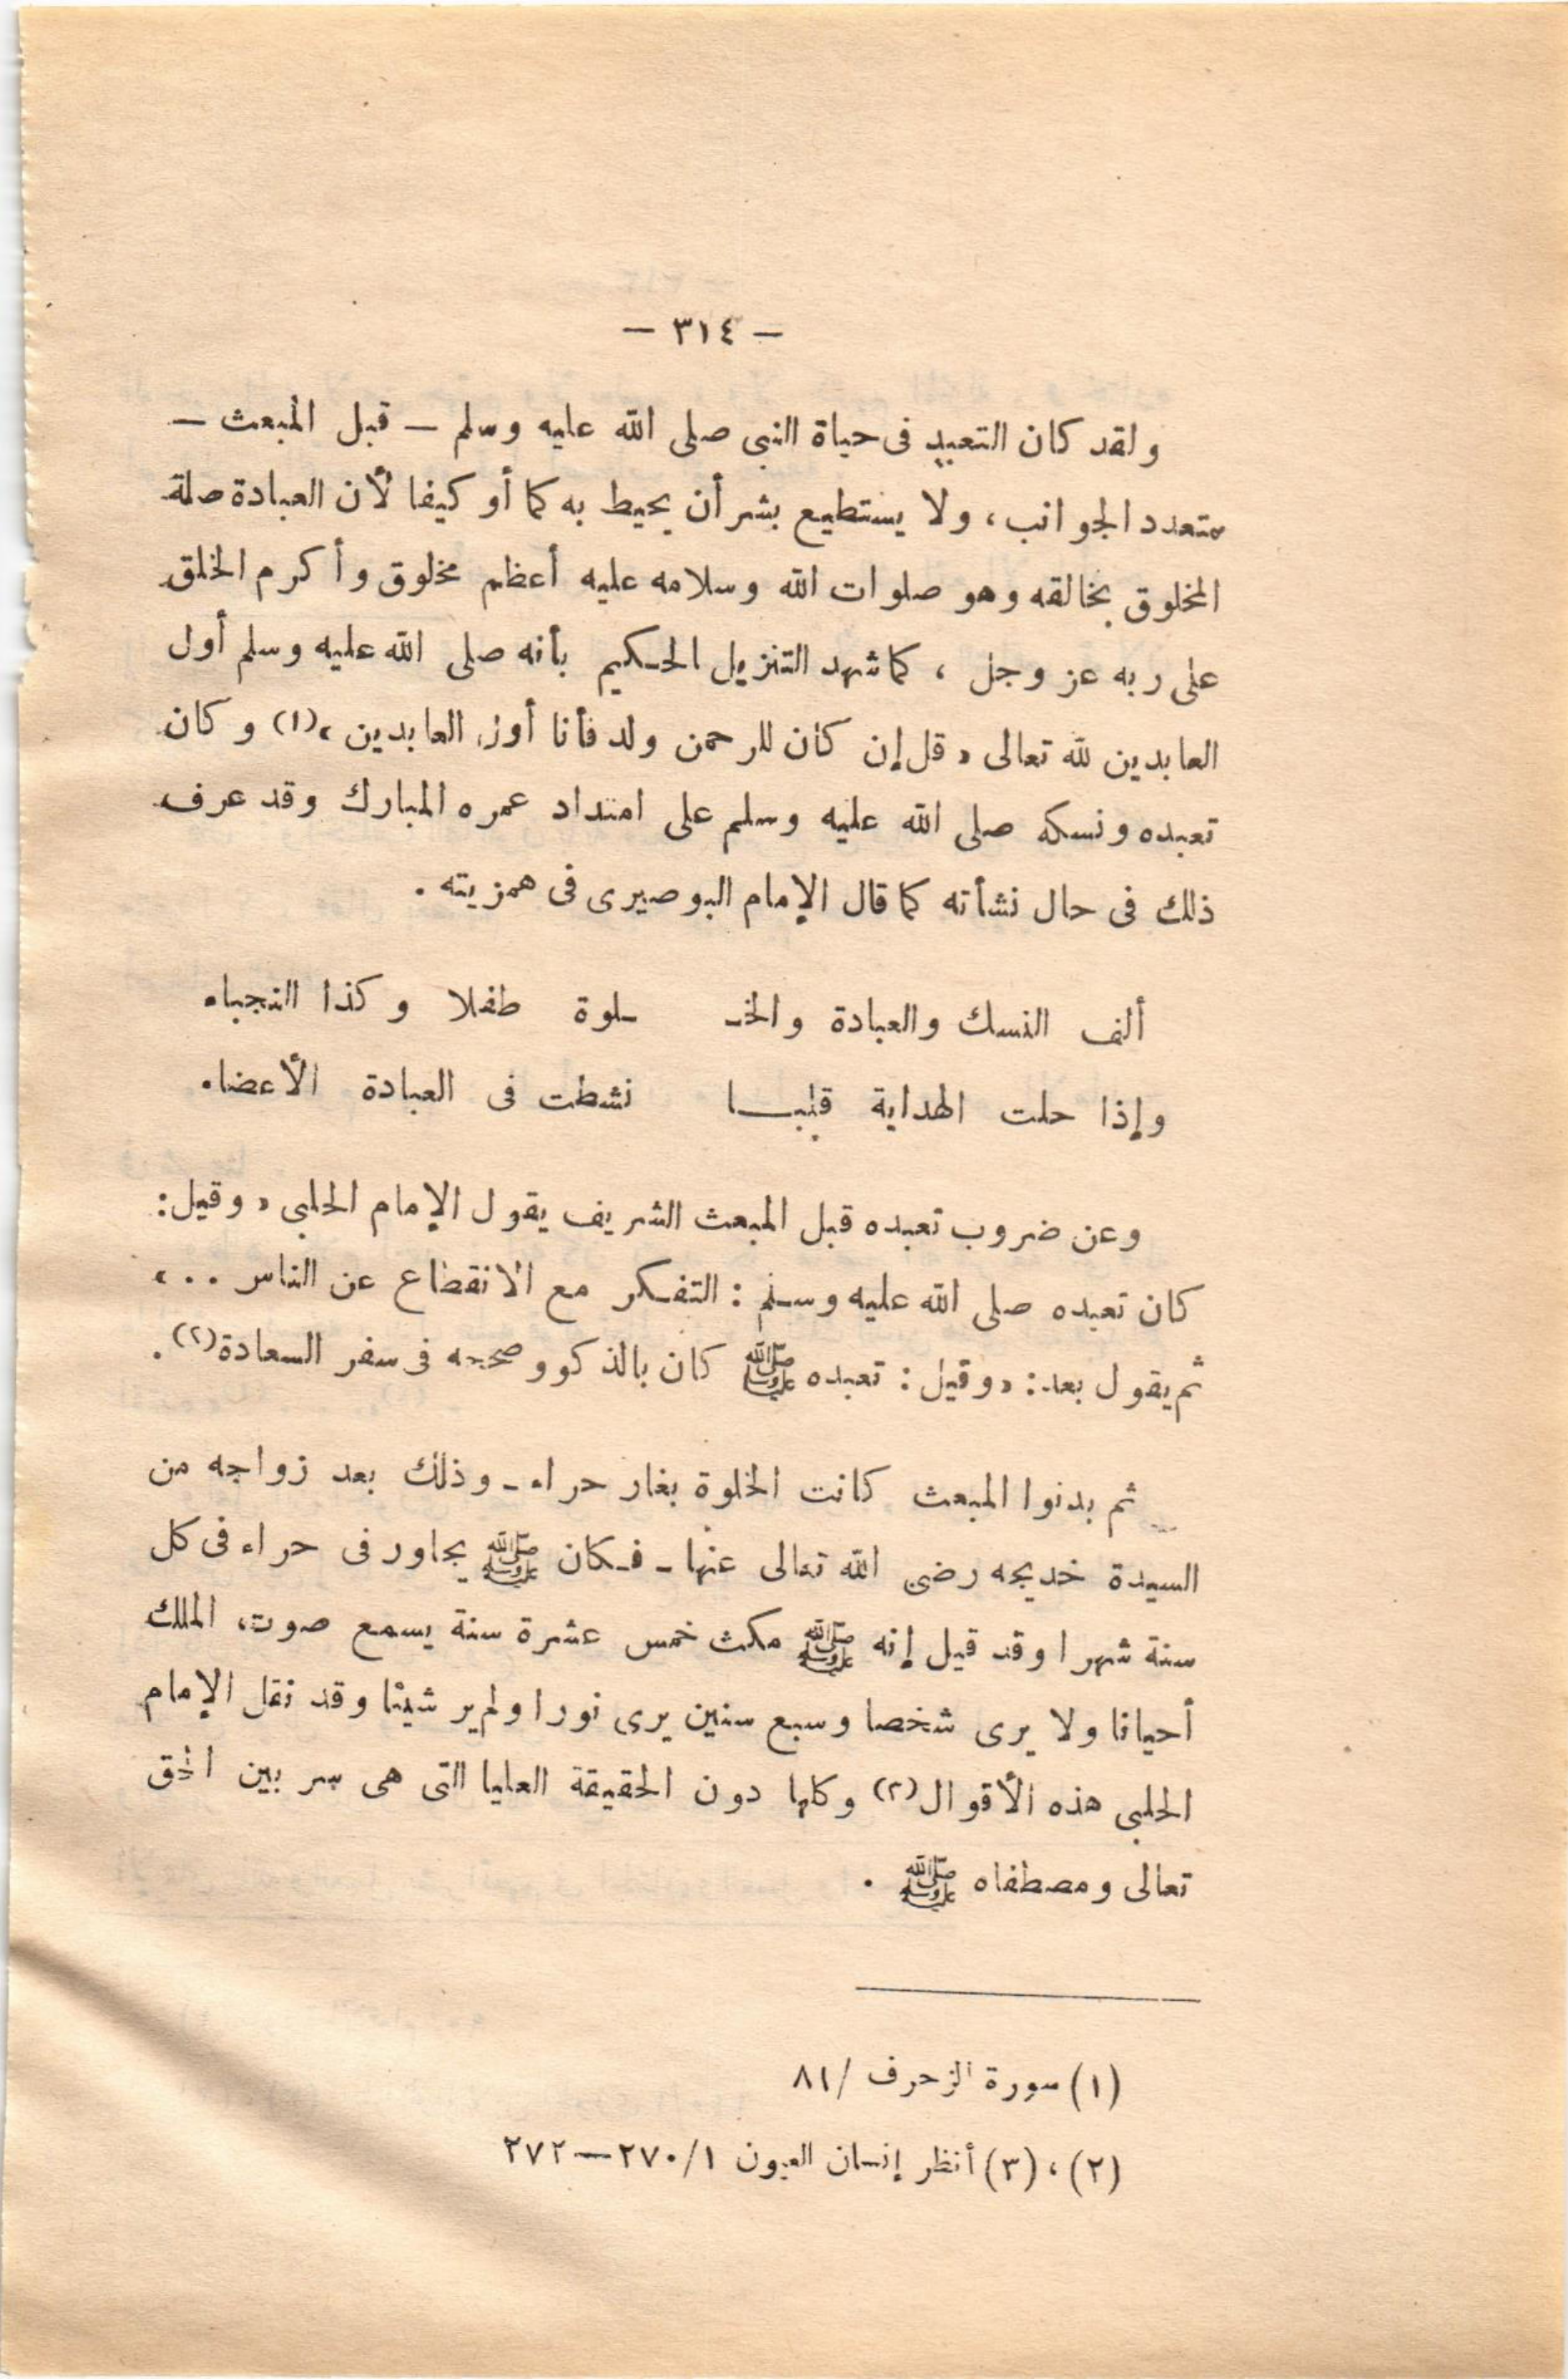 — ٣١٤ —
ولقد كان التعبد فى حياة النبى صلى الله عليه وسلم — قبل المبعث —
متعدد الجوانب، ولا يستطيع بشر أن يحيط به كما أو كيفا لأن العبادة صلة
المخلوق بخالقه وهو صلوات الله وسلامه عليه أعظم مخلوق وأكرم الخلق
على ربه عز وجل ، كما شهد التنزيل الحكيم بأنه صلى الله عليه وسلم أول
العابدين لله تعالى «قل إن كان للرحمن ولد فأنا أول العابدين»(١) وكان
تعبده ونسكه صلى الله عليه وسلم على امتداد عمره المبارك وقد عرف
ذلك فى حال نشأته كما قال الإمام البوصيرى فى همزيته .
ألف النسك والعبادة والخـ ـلوة طفلا وكذا النجباء
وإذا حلت الهداية قلبـــا نشطت فى العبادة الأعضاء
وعن ضروب تعبده قبل المبعث الشريف يقول الإمام الحلبى «وقيل:
كان تعبده صلى الله عليه وسلم : التفكر مع الانقطاع عن الناس ..»
ثم يقول بعد: «وقيل : تعبده ﷺ كان بالذكر وصححه فى سفر السعادة(٢) .
ثم بدنوا المبعث كانت الخلوة بغار حراء - وذلك بعد زواجه من
السيدة خديجه رضى الله تعالى عنها - فكان ﷺ يجاور فى حراء فى كل
سنة شهرا وقد قيل إنه ﷺ مكث خمس عشرة سنة يسمع صوت، الملك
أحيانا ولا يرى شخصا وسبع سنين يرى نورا ولم ير شيئا وقد نقل الإمام
الحلبى هذه الأقوال(٢) وكلها دون الحقيقة العليا التى هى سر بين الحق
تعالى ومصطفاه ﷺ .
(١) سورة الزحرف /٨١
(٢) ، (٣) أنظر إنسان العيون ٢٧٠/١—٢٧٢